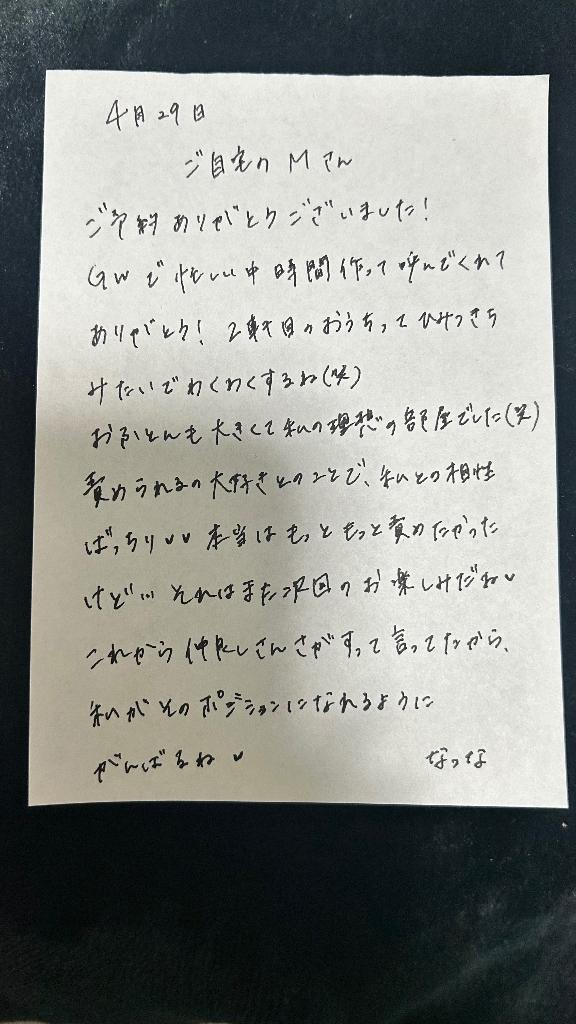 4月29日
ご自宅のMさん
ご予約ありがとうございました!
GWで忙しい中時間作って呼んでくれて
ありがとう! 2軒目のおうちってひみつきち
みたいでわくわくするね(笑)
おふとんも大きくて私の理想の部屋でした(笑)
責められるの大好きとのことで、私との相性
ばっちり♥♥ 本当はもっともっと責めたかった
けど… それはまた次回のお楽しみだね♥
これから仲良しさんさがすって言ってたから、
私がそのポジションになれるように
がんばるね♥ なつな